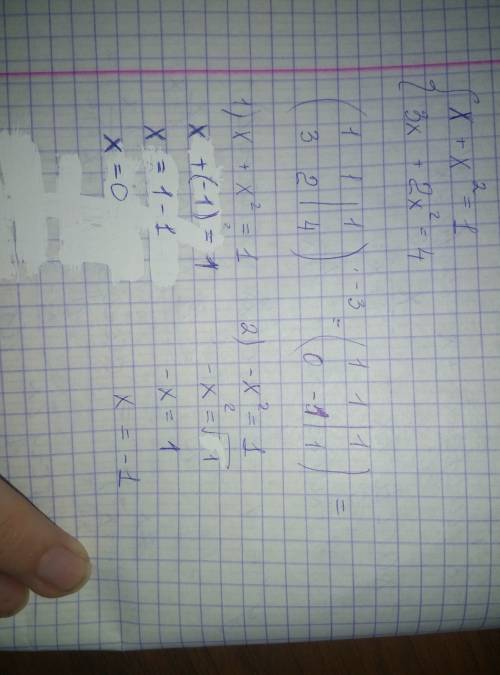 { x + x² = 1
3x + 2x² = 4
( 1 1 | 1
3 2 | 4 ) · -3 = ( 1 1 | 1
0 -1 | 1 ) =
1) x + x² = 1
x + (-1)² = 1
x = 1 - 1
x = 0
2) -x² = 1
-x² = √1
-x = 1
x = -1